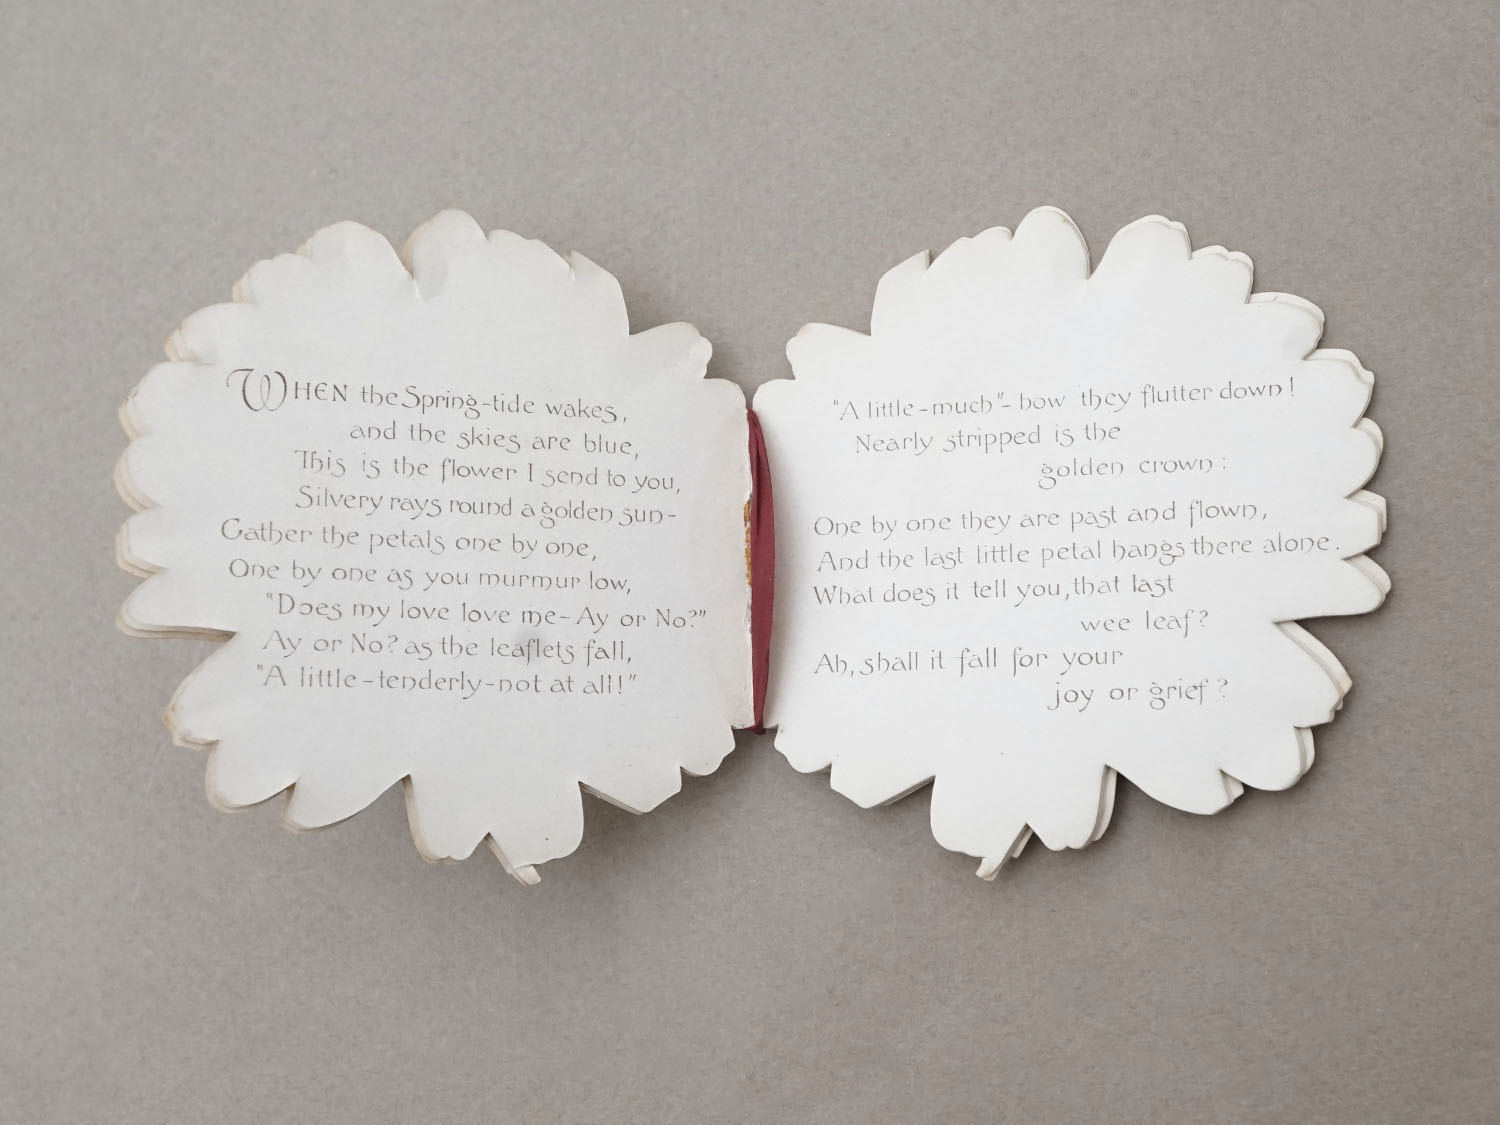 WHEN the Spring-tide wakes,
and the skies are blue,
This is the flower I send to you,
Silvery rays round a golden sun-
Gather the petals one by one,
One by one as you murmur low,
"Does my love love me-Ay or No?"
Ay or No? as the leaflets fall,
"A little-tenderly-not at all!"
"A little-much"-how they flutter down!
Nearly stripped is the
golden crown:
One by one they are past and flown,
And the last little petal hangs there alone.
What does it tell you, that last
wee leaf?
Ah, shall it fall for your
joy or grief?